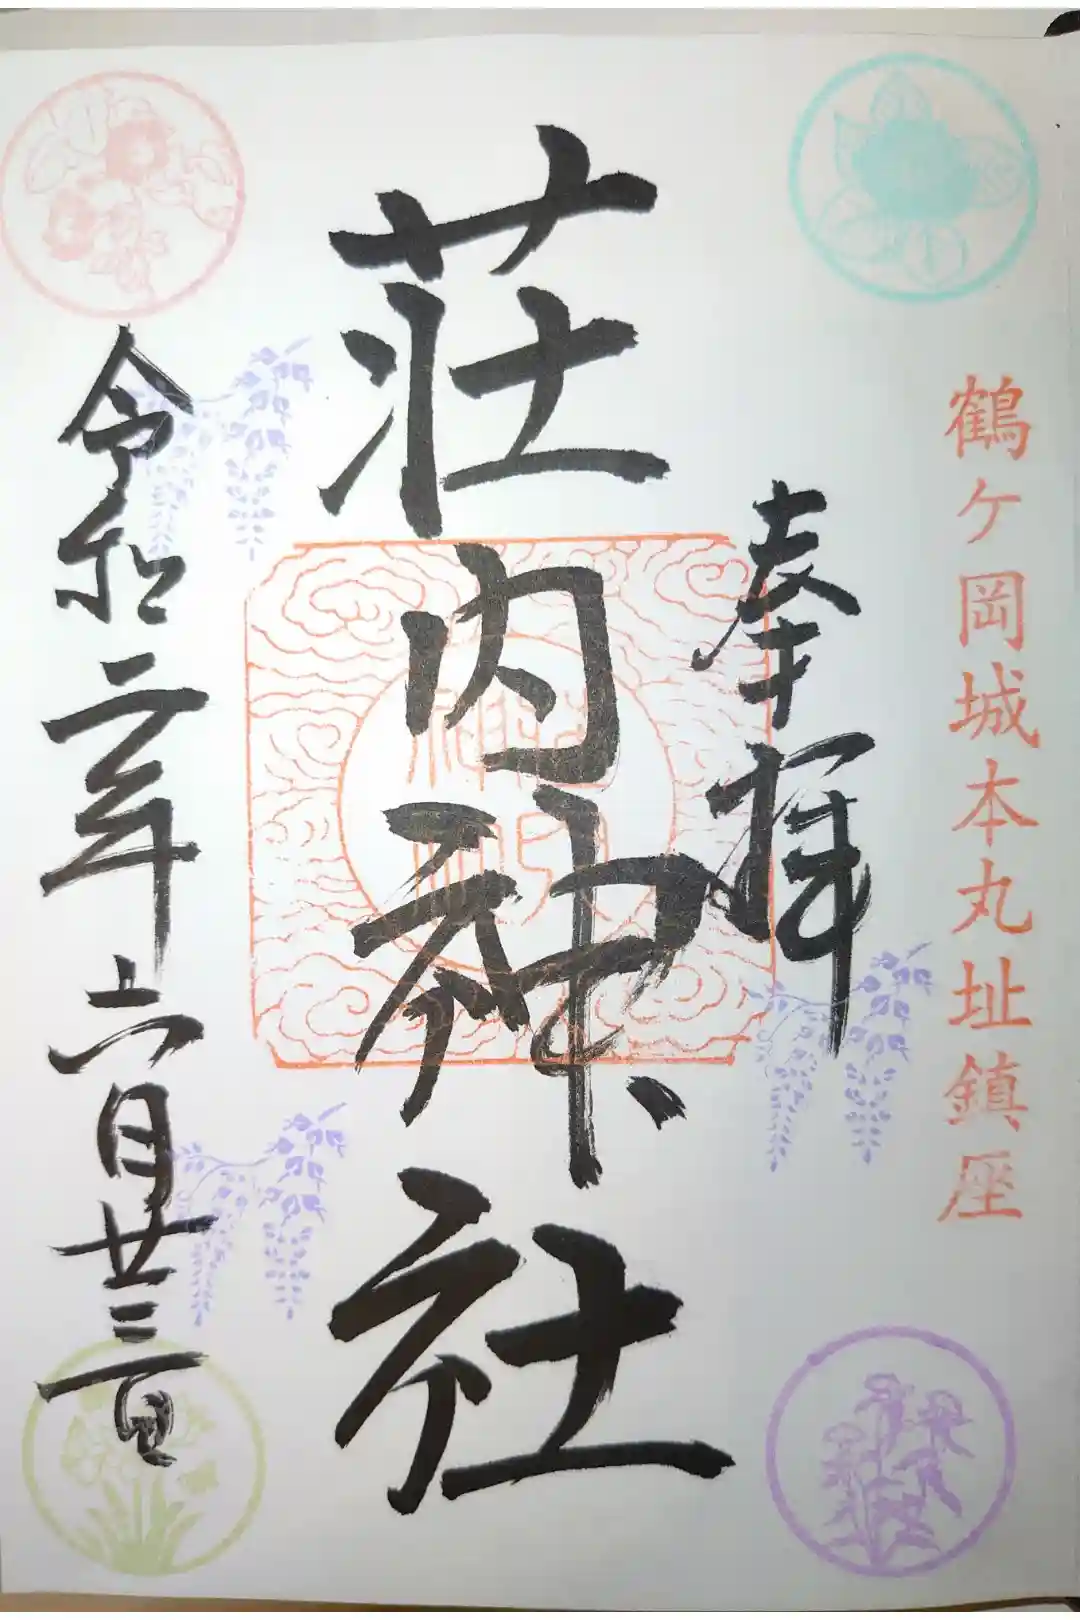 鶴ケ岡城本丸址鎮座
奉拝
荘内神社
令和二年六月廿三日